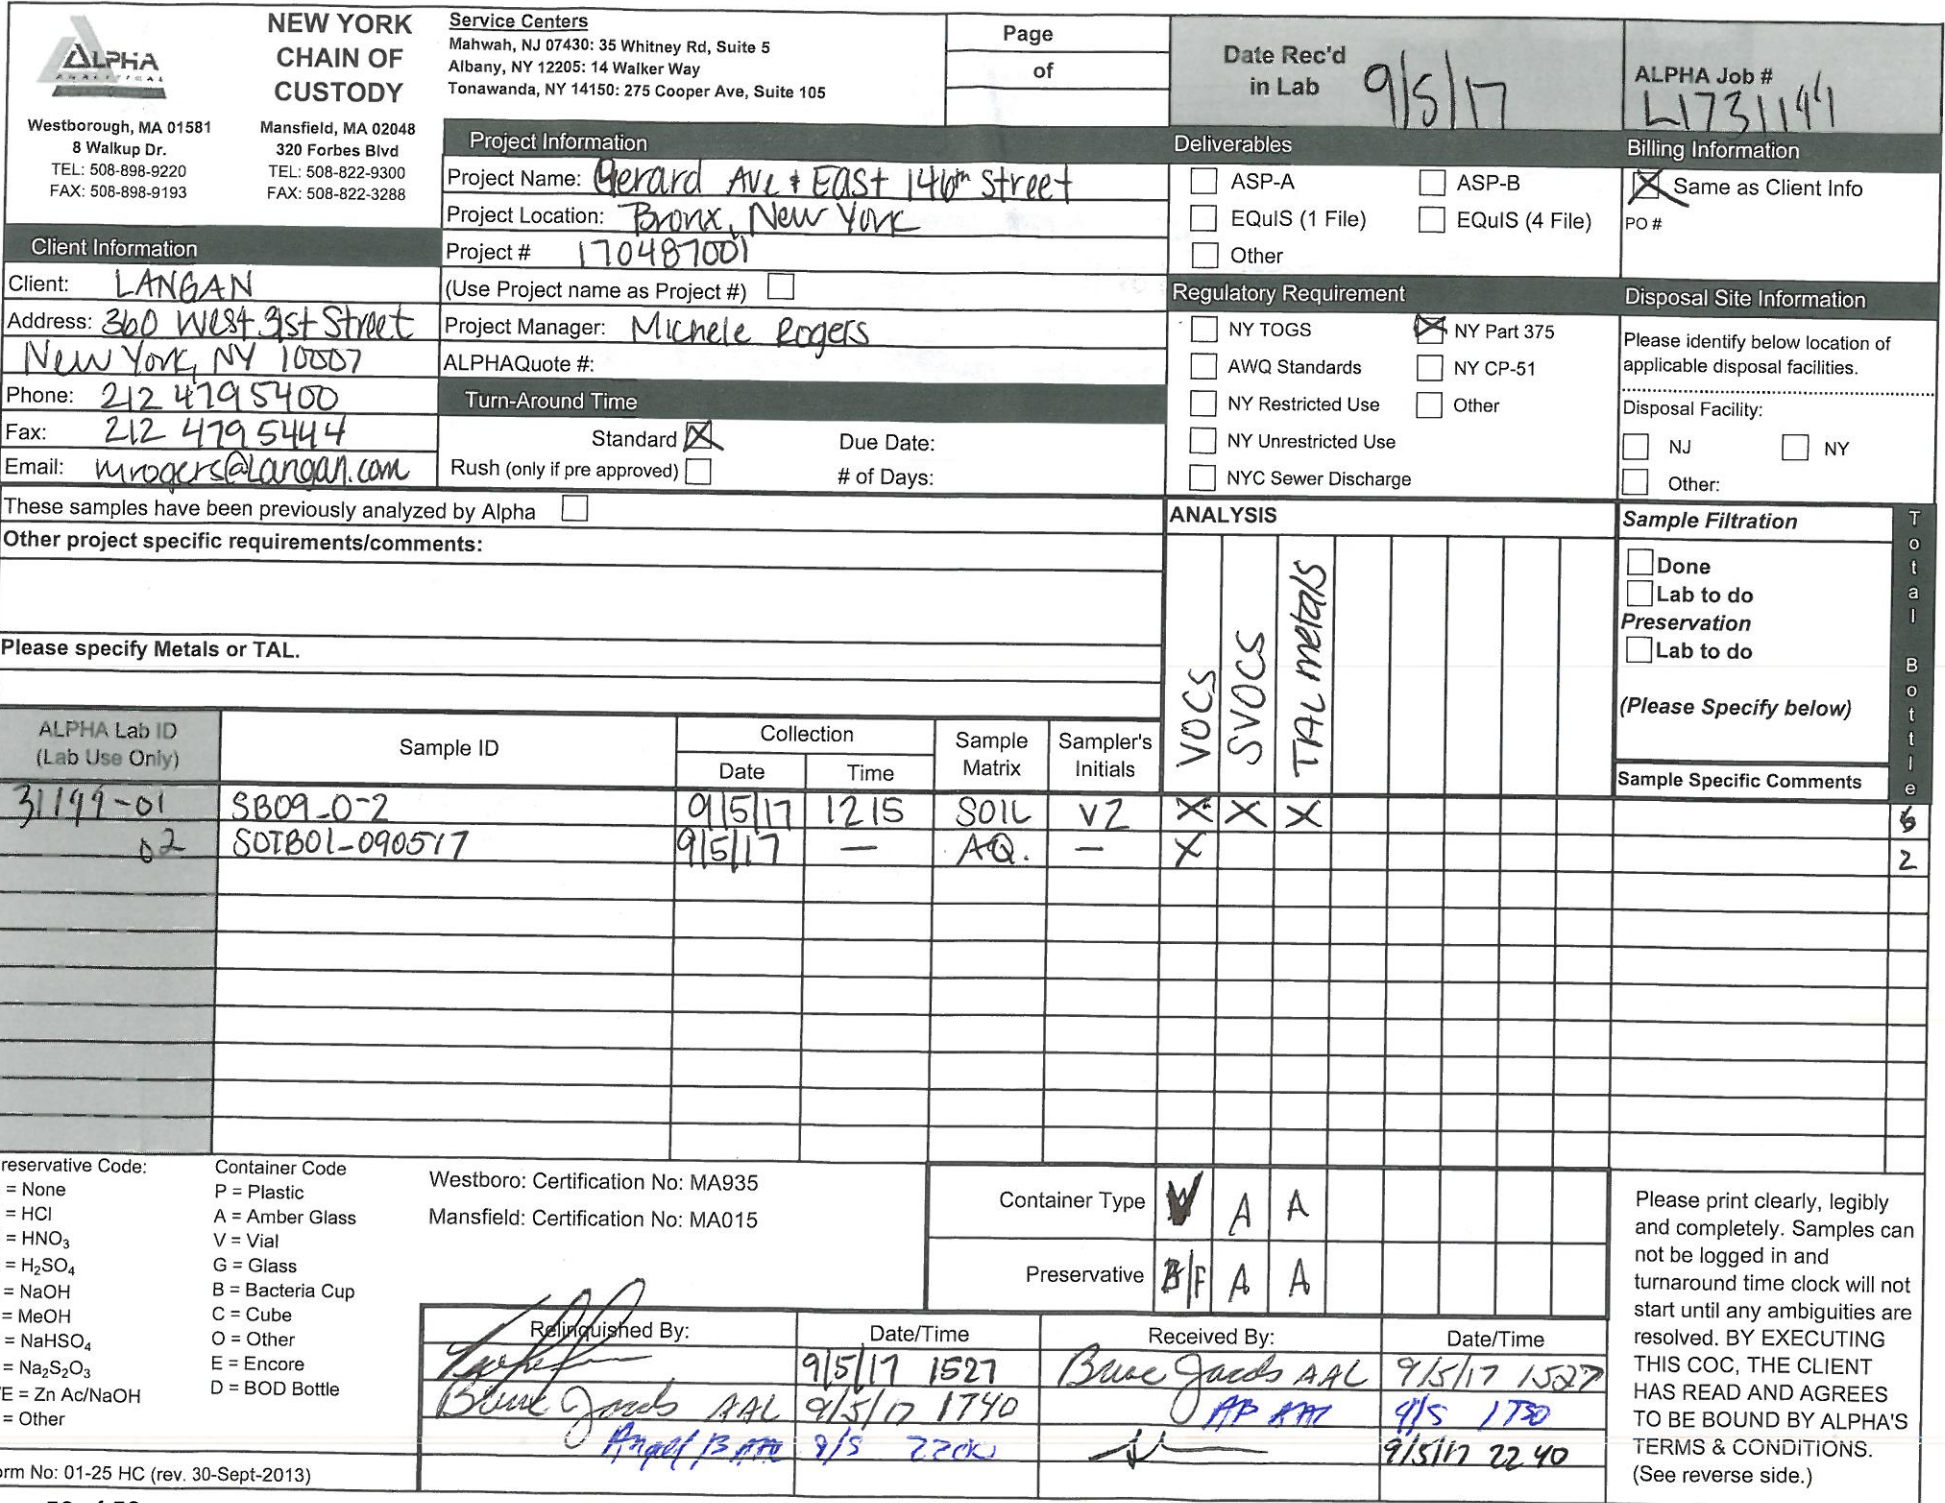 ALPHA
ANALYTICAL
NEW YORK
CHAIN OF
CUSTODY
Westborough, MA 01581
8 Walkup Dr.
TEL: 508-898-9220
FAX: 508-898-9193
Mansfield, MA 02048
320 Forbes Blvd
TEL: 508-822-9300
FAX: 508-822-3288
Service Centers
Mahwah, NJ 07430: 35 Whitney Rd, Suite 5
Albany, NY 12205: 14 Walker Way
Tonawanda, NY 14150: 275 Cooper Ave, Suite 105
Page
of
Date Rec'd
in Lab 9/5/17
ALPHA Job #
L1731199
Client Information
Client: LANGAN
Address: 360 West 31st Street
New York, NY 10007
Phone: 212 479 5400
Fax: 212 479 5444
Email: mrogers@Langan.com
Project Information
Project Name: Gerard Ave + East 146th Street
Project Location: Bronx, New York
Project # 170487001
(Use Project name as Project #)
Project Manager: Michele Rogers
ALPHAQuote #:
Turn-Around Time
Standard X Due Date:
Rush (only if pre approved) # of Days:
Deliverables
ASP-A ASP-B
EQuIS (1 File) EQuIS (4 File)
Other
Regulatory Requirement
NY TOGS X NY Part 375
AWQ Standards NY CP-51
NY Restricted Use Other
NY Unrestricted Use
NYC Sewer Discharge
Billing Information
X Same as Client Info
PO #
Disposal Site Information
Please identify below location of
applicable disposal facilities.
Disposal Facility:
NJ NY
Other:
These samples have been previously analyzed by Alpha
Other project specific requirements/comments:
Please specify Metals or TAL.
ANALYSIS
VOCS
SVOCS
TAL metals
Sample Filtration
Done
Lab to do
Preservation
Lab to do
(Please Specify below)
Total Bottle
ALPHA Lab ID
(Lab Use Only)
Sample ID
Collection
Date Time
Sample
Matrix
Sampler's
Initials
Sample Specific Comments
31199-01 SB09_0-2 9/5/17 1215 SOIL VZ X X X
02 SOTB01_090517 9/5/17 — AQ. — X 2
reservative Code:
= None
= HCl
= HNO₃
= H₂SO₄
= NaOH
= MeOH
= NaHSO₄
= Na₂S₂O₃
/E = Zn Ac/NaOH
= Other
Container Code
P = Plastic
A = Amber Glass
V = Vial
G = Glass
B = Bacteria Cup
C = Cube
O = Other
E = Encore
D = BOD Bottle
Westboro: Certification No: MA935
Mansfield: Certification No: MA015
Container Type V A A
Preservative B/F A A
Relinquished By: Date/Time Received By: Date/Time
9/5/17 1527 Bruce Jacobs AAL 9/5/17 1527
Bruce Jacobs AAL 9/5/17 1740 AP 9/5
Angel B 9/5 9/5/17 2240
Please print clearly, legibly
and completely. Samples can
not be logged in and
turnaround time clock will not
start until any ambiguities are
resolved. BY EXECUTING
THIS COC, THE CLIENT
HAS READ AND AGREES
TO BE BOUND BY ALPHA'S
TERMS & CONDITIONS.
(See reverse side.)
orm No: 01-25 HC (rev. 30-Sept-2013)